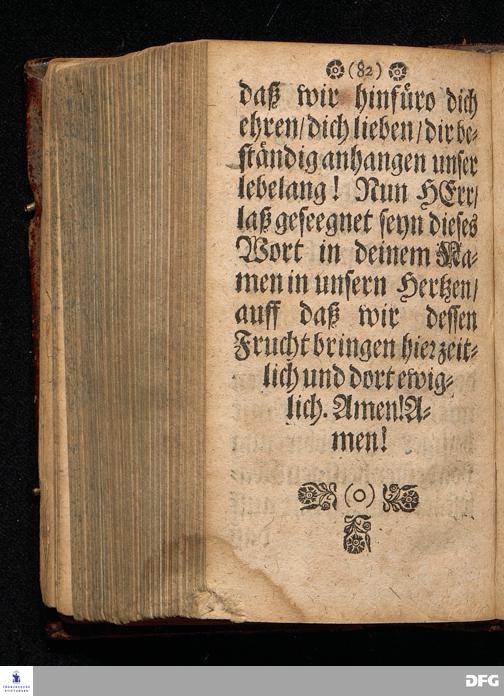 (82)
daß wir hinfüro dich
ehren/dich lieben/dir be-
ständig anhangen unser
lebelang! Nun HErr/
laß geseegnet seyn dieses
Wort in deinem Na-
men in unsern Hertzen/
auff daß wir dessen
Frucht bringen hier zeit-
lich und dort ewig-
lich. Amen! A-
men!
(o)
FRANCKESCHE
STIFTUNGEN
DFG